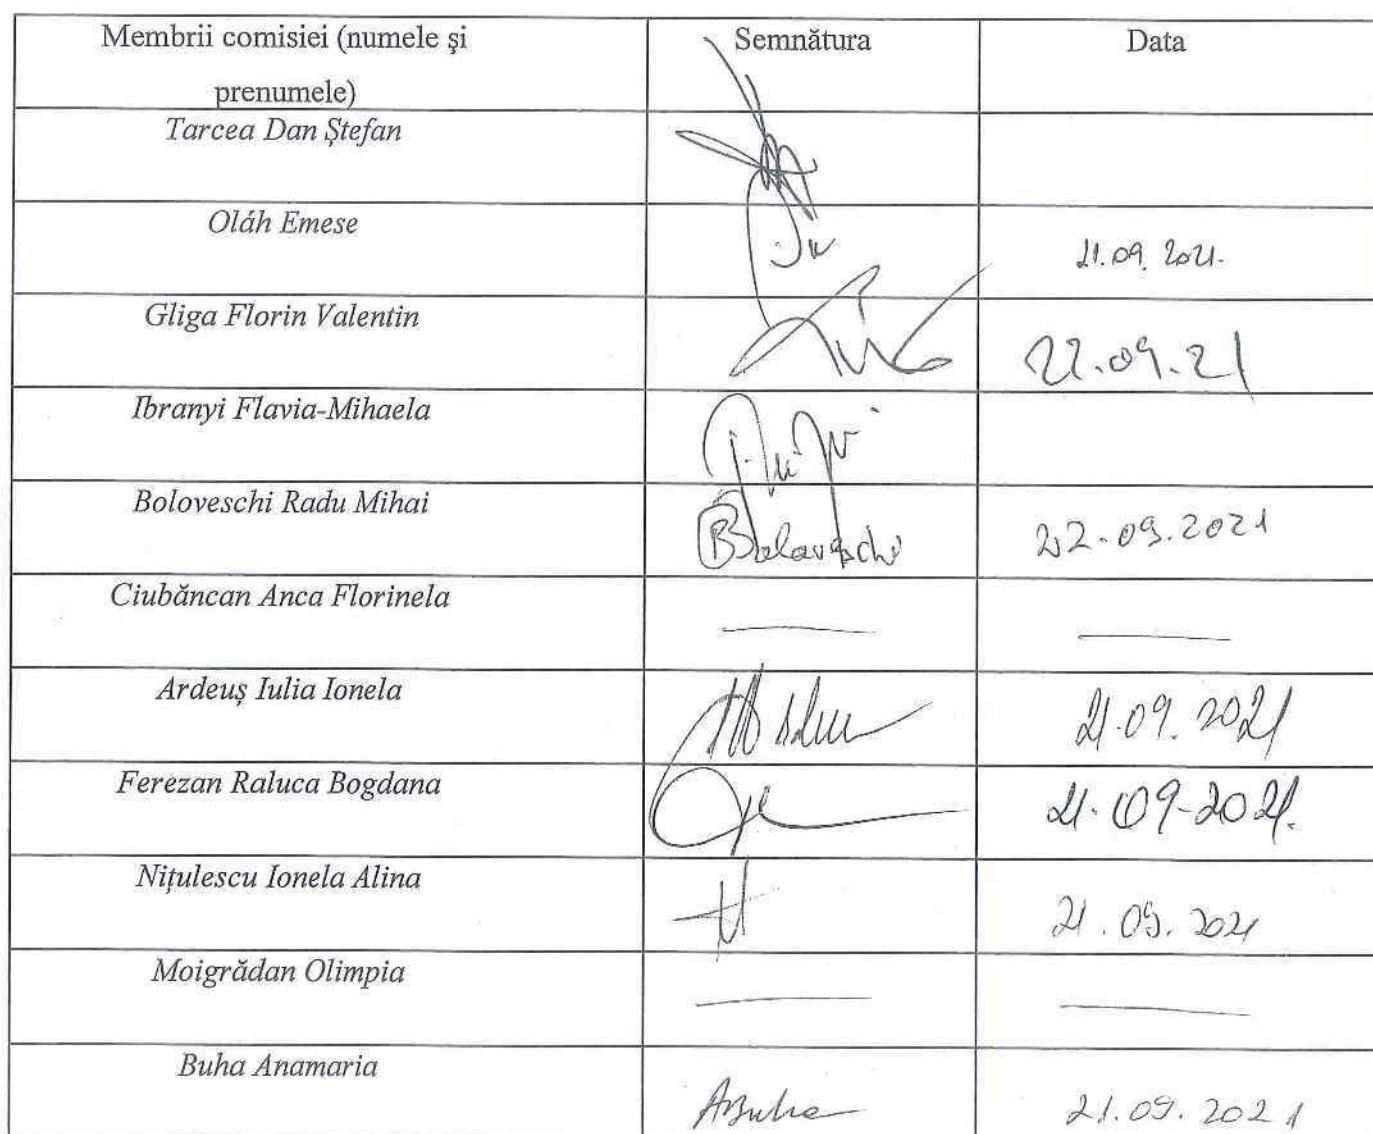 Membrii comisiei (numele și Semnătura Data
prenumele)
Tarcea Dan Ștefan
Oláh Emese 21.09.2021.
Gliga Florin Valentin 22.09.21
Ibranyi Flavia-Mihaela
Boloveschi Radu Mihai Boloveschi 22.09.2021
Ciubăncan Anca Florinela — —
Ardeuș Iulia Ionela 21.09.2021
Ferezan Raluca Bogdana 21.09-2021.
Nițulescu Ionela Alina 21.09.2021
Moigrădan Olimpia — —
Buha Anamaria ABuha 21.09.2021